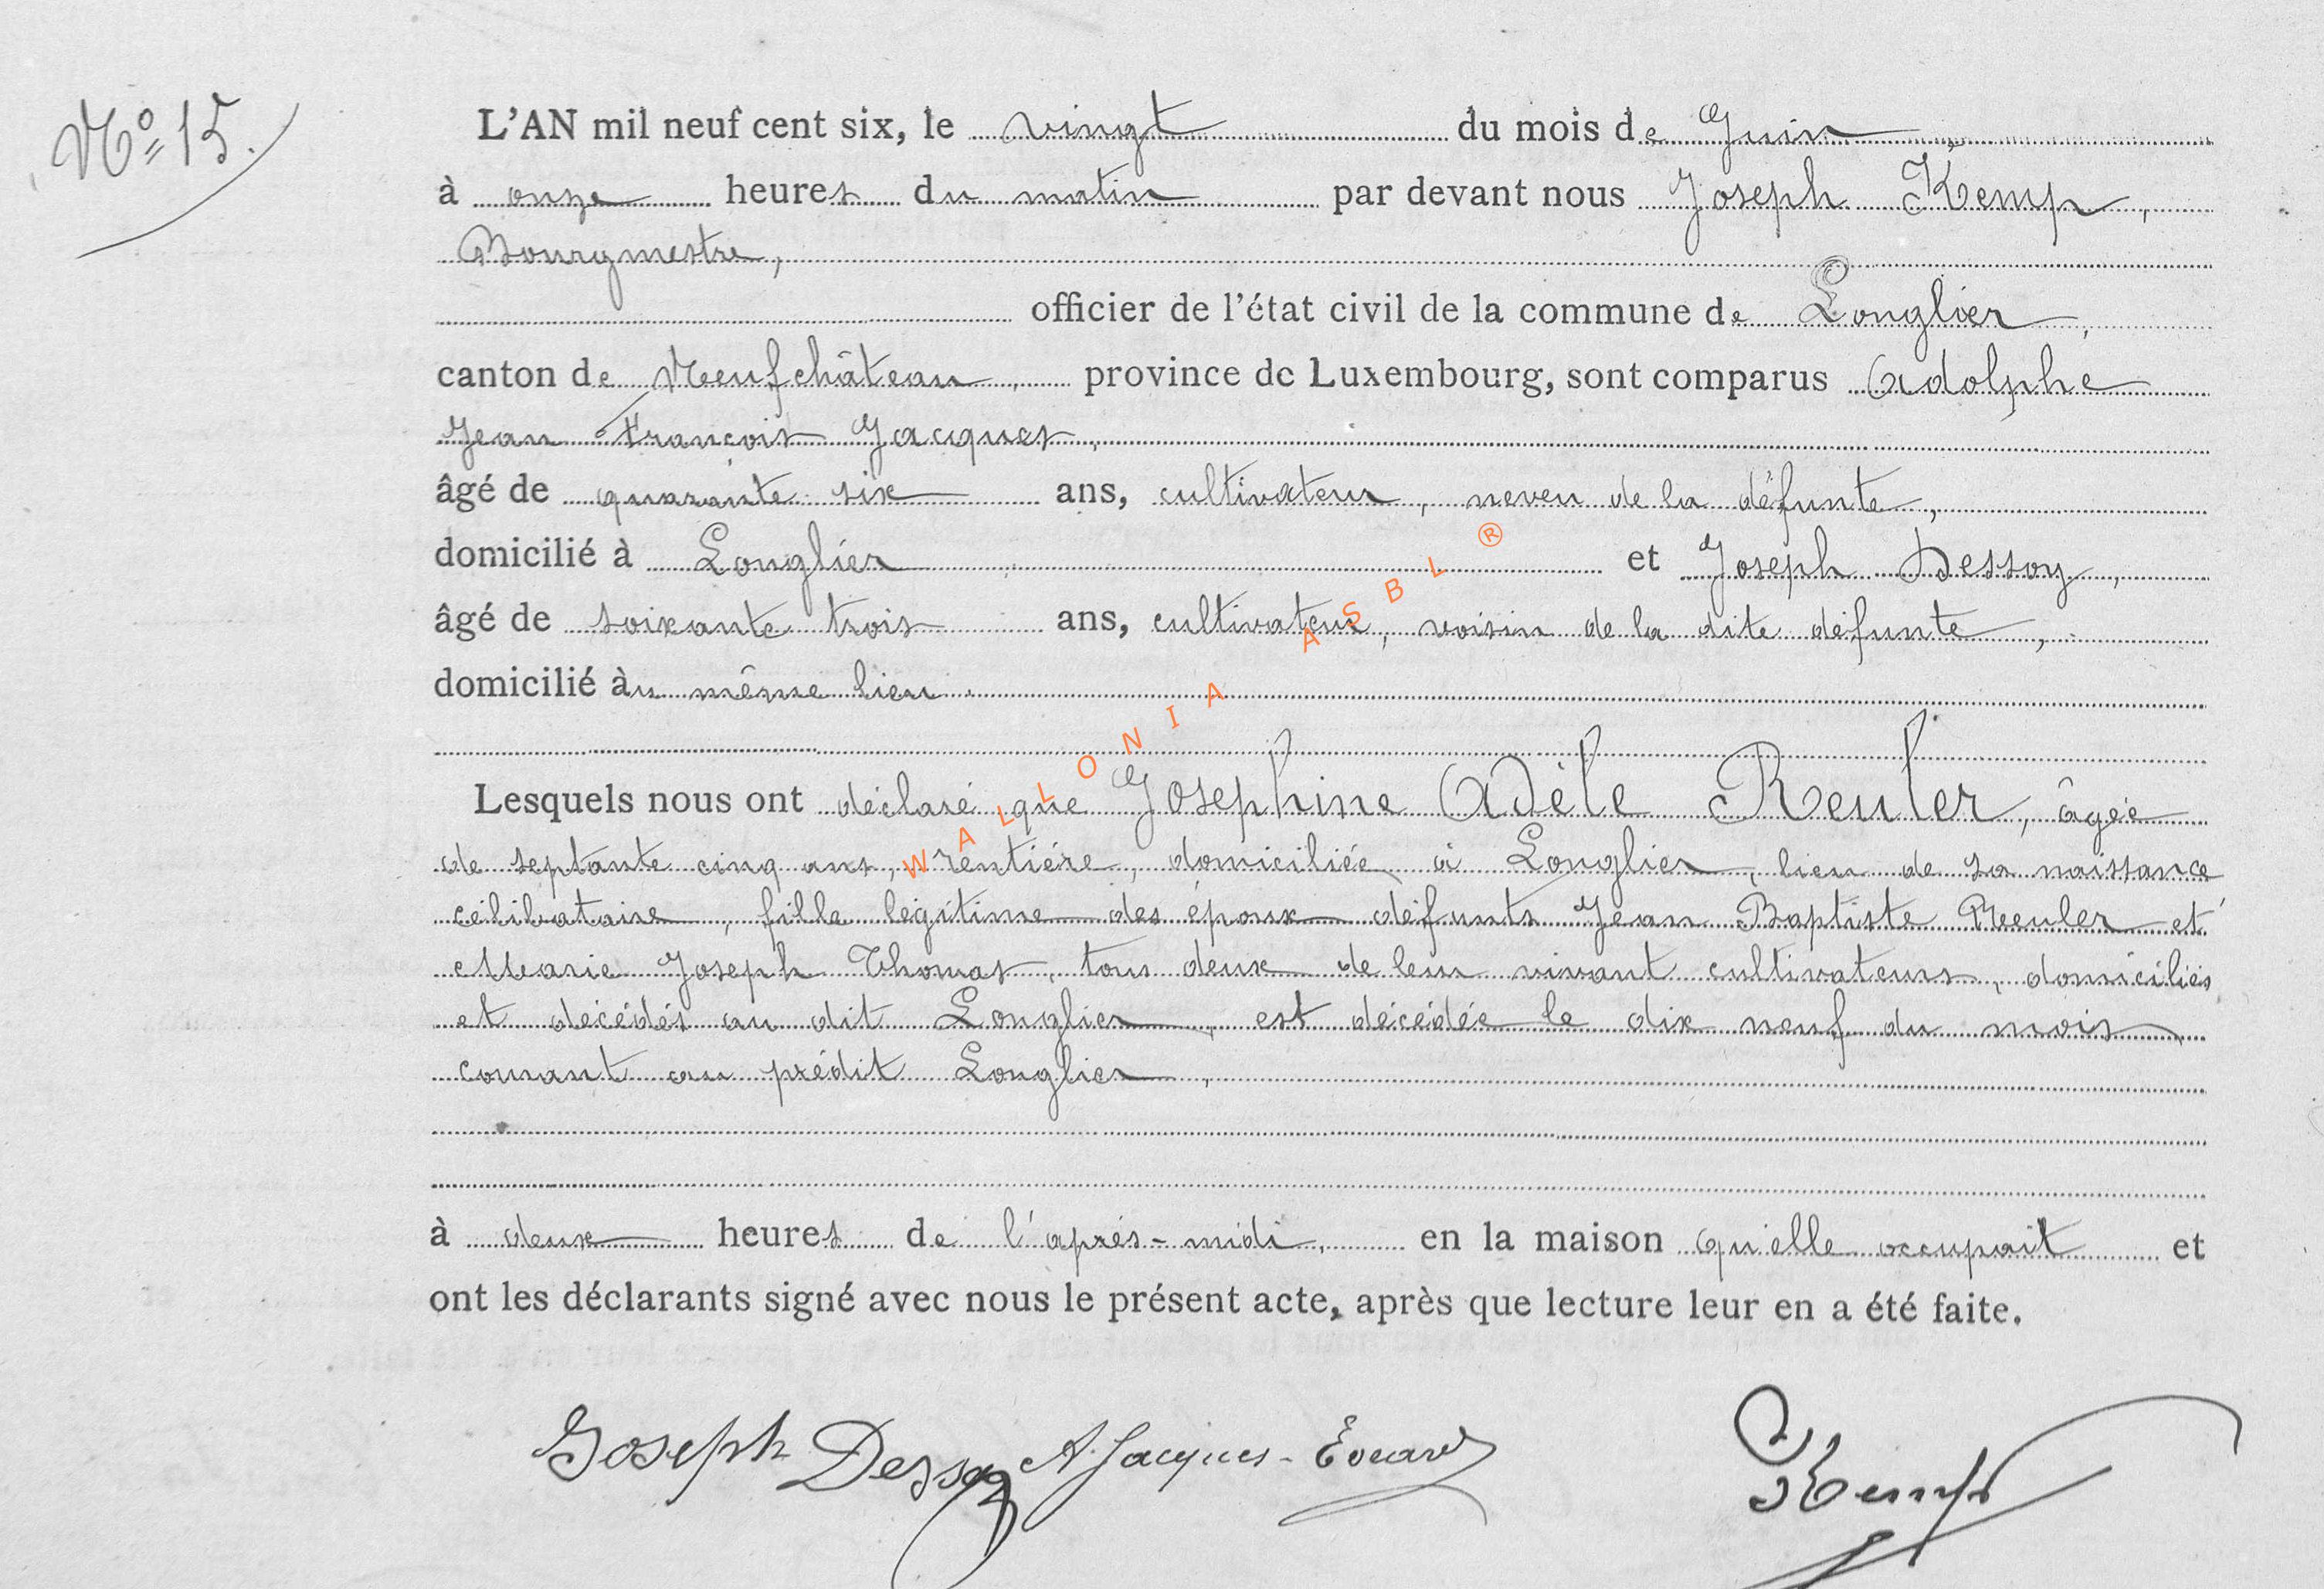 Nº 15.
L'AN mil neuf cent six, le vingt du mois de Juin
à onze heures du matin par devant nous Joseph Kemp,
Bourgmestre,
officier de l'état civil de la commune de Longlier,
canton de Neufchâteau, province de Luxembourg, sont comparus Adolphe
Jean François Jacques,
âgé de quarante six ans, cultivateur, neveu de la défunte,
domicilié à Longlier et Joseph Dessoy,
âgé de soixante trois ans, cultivateur, voisin de la dite défunte,
domicilié au même lieu.
Lesquels nous ont déclaré que Joséphine Adèle Reuler, âgée
de septante cinq ans, rentière, domiciliée à Longlier, lieu de sa naissance
célibataire, fille légitime des époux défunts Jean Baptiste Reuler et
Marie Joseph Thomas, tous deux de leur vivant cultivateurs, domiciliés
et décédés au dit Longlier, est décédée le dix neuf du mois
courant au prédit Longlier,
à deux heures de l'après-midi, en la maison qu'elle occupait et
ont les déclarants signé avec nous le présent acte, après que lecture leur en a été faite.
Joseph Dessoy A. Jacques - Evrard Kemp
WALLONIA ASBL ®